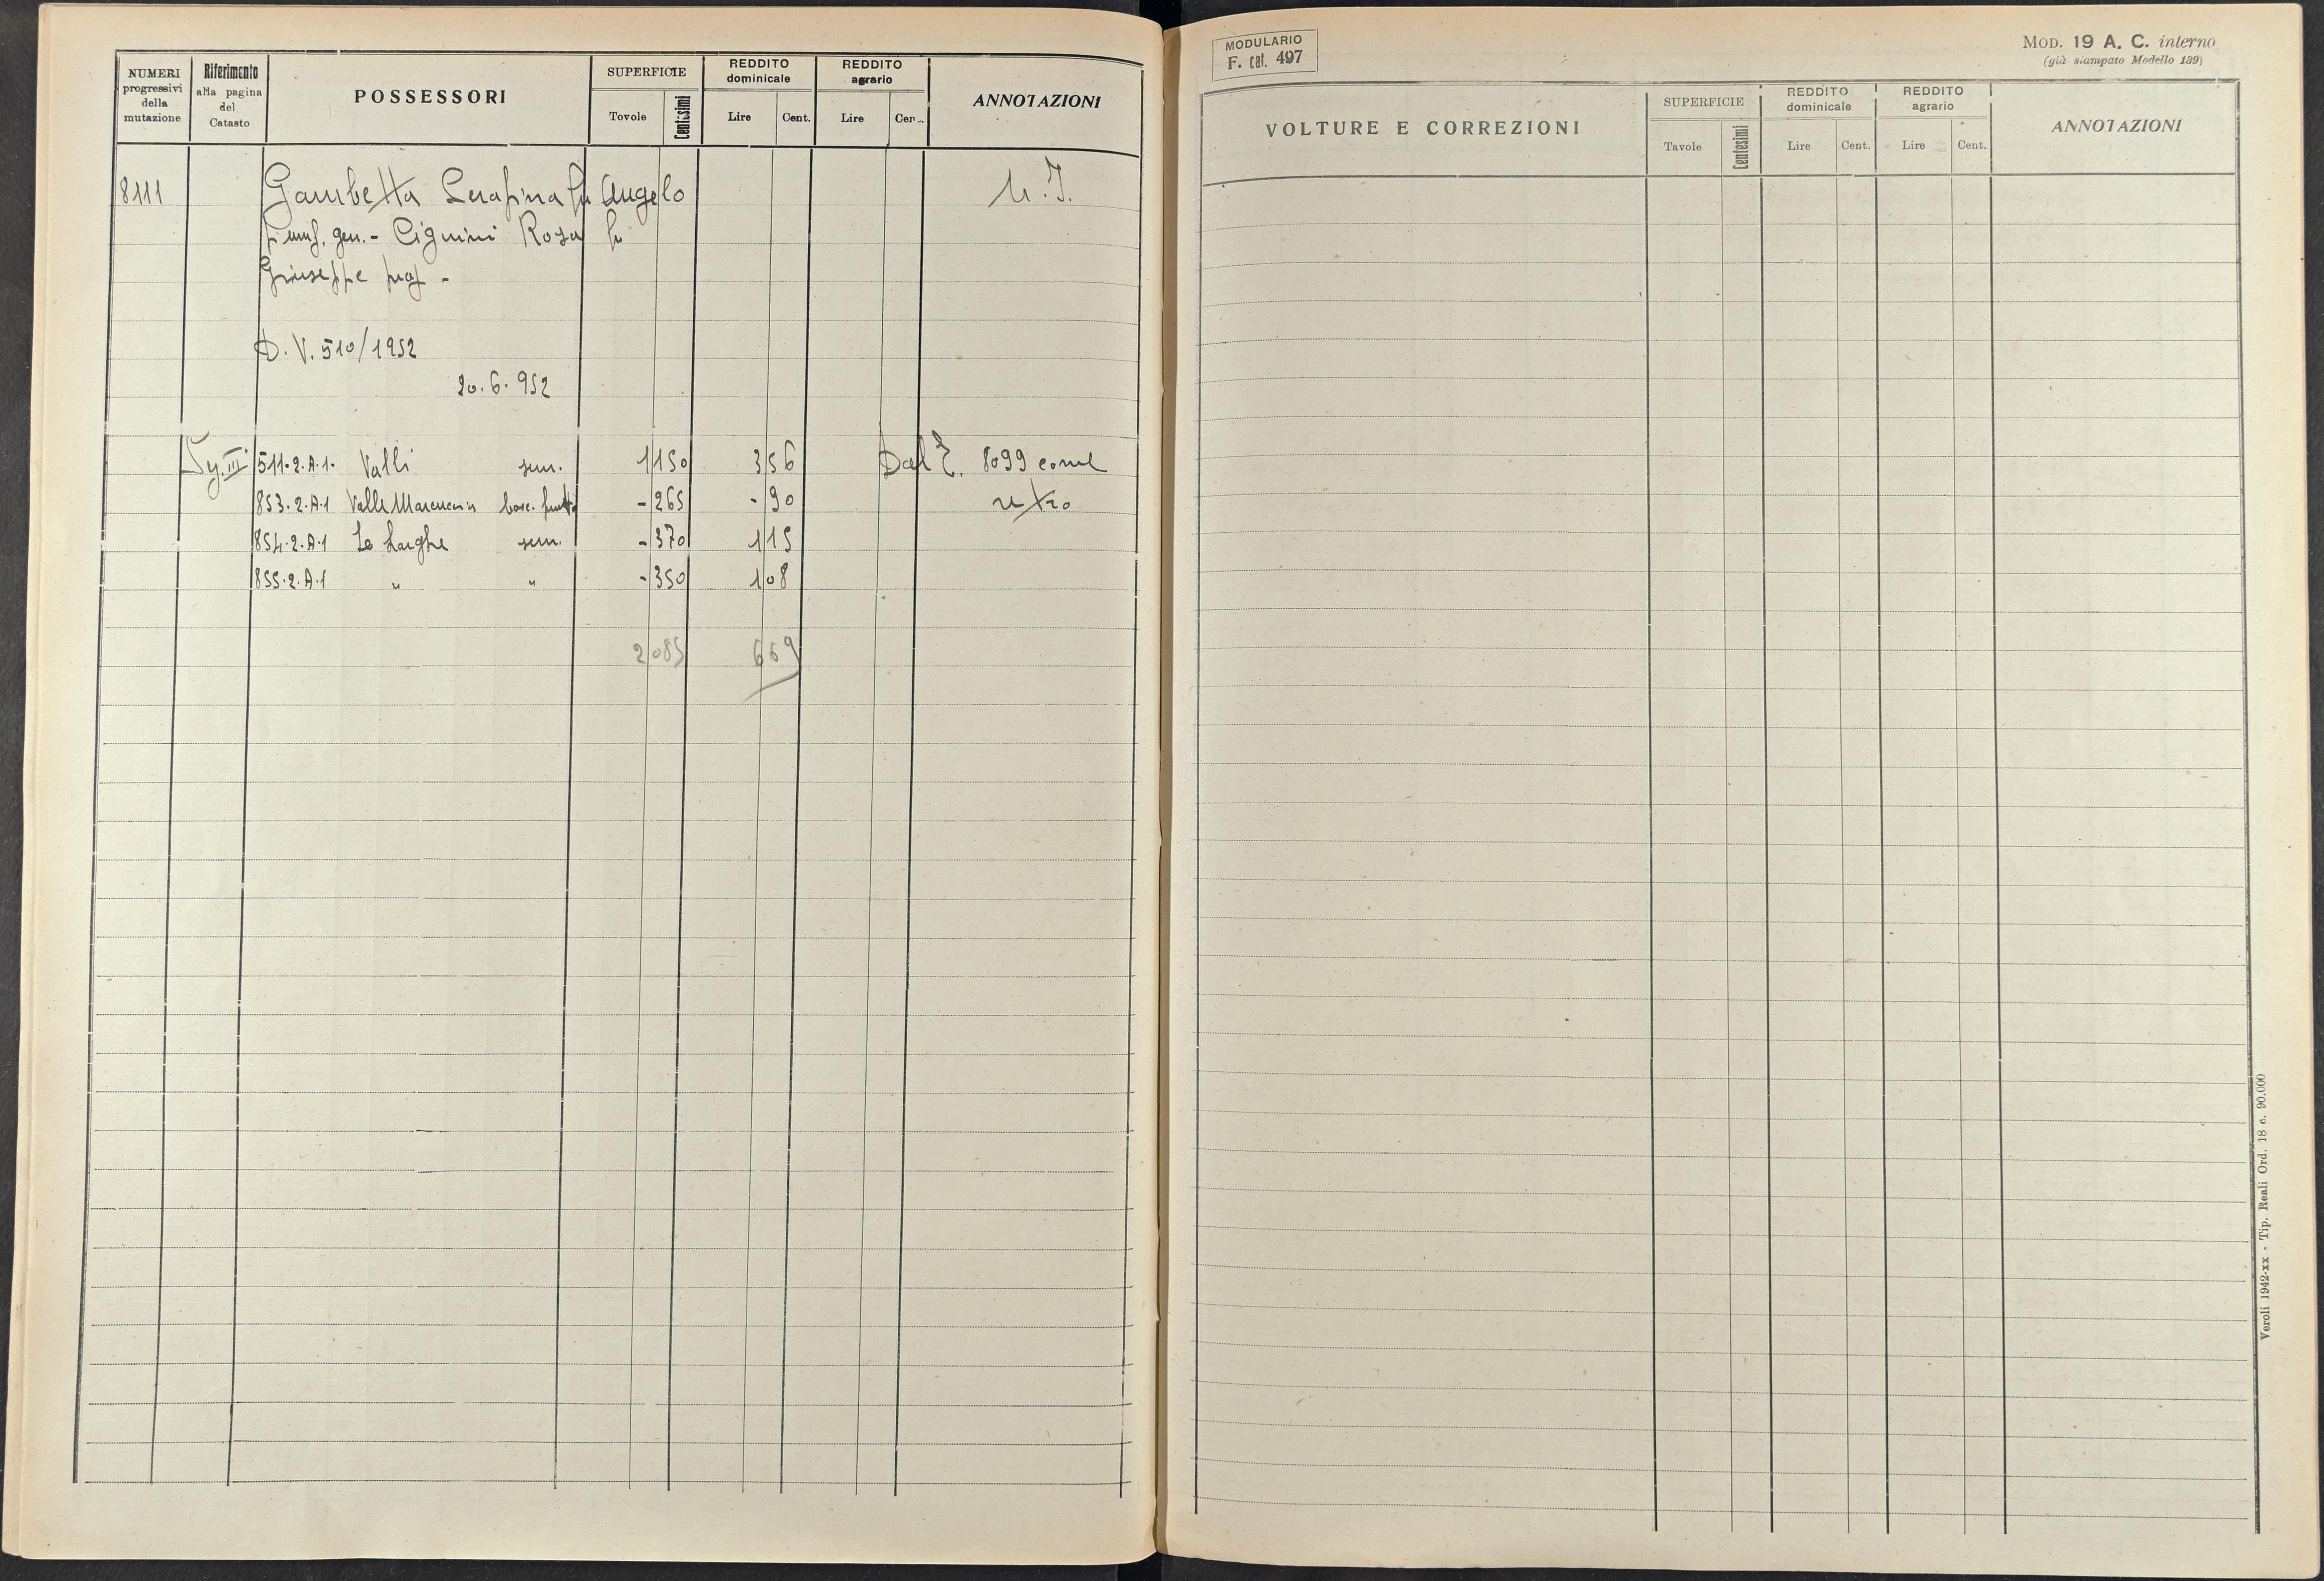 NUMERI progressivi della mutazione
Riferimento alla pagina del Catasto
POSSESSORI
SUPERFICIE
Tavole
Centesimi
REDDITO dominicale
Lire
Cent.
REDDITO agrario
Lire
Cen
ANNOTAZIONI
8111 Gambetta Serafina fu Angelo
gen. - Cignini Rosa fu
Giuseppe
D. V. 510/1952
20. 6. 952
III 511.2.A.1. Valli sem. 1 150 3 56 Dal 8099
853.2.A.1 Valle - 265 - 90
854.2.A.1 Le Larghe sem. - 370 1 15
855.2.A.1 " " - 350 1 08
2 085 6 69
MODULARIO
F. cat. 497
MOD. 19 A. C. interno
(già stampato Modello 139)
VOLTURE E CORREZIONI
SUPERFICIE
Tavole
Centesimi
REDDITO dominicale
Lire
Cent.
REDDITO agrario
Lire
Cent.
ANNOTAZIONI
Veroli 1942-XX - Tip. Reali Ord. 18 c. 90.000